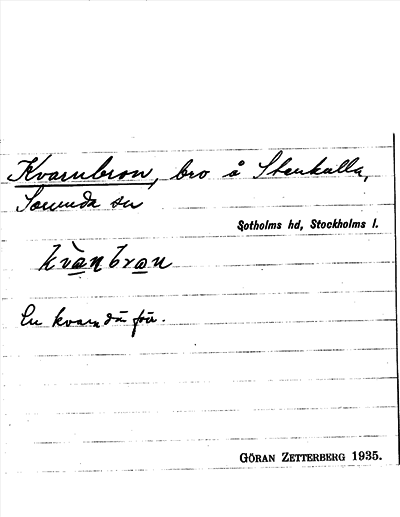 Kvarnbron, bro å Stenkalla,
Sorunda sn
Sotholms hd, Stockholms l.
kvànbran
En kvarn där förr.
GÖRAN ZETTERBERG 1935.